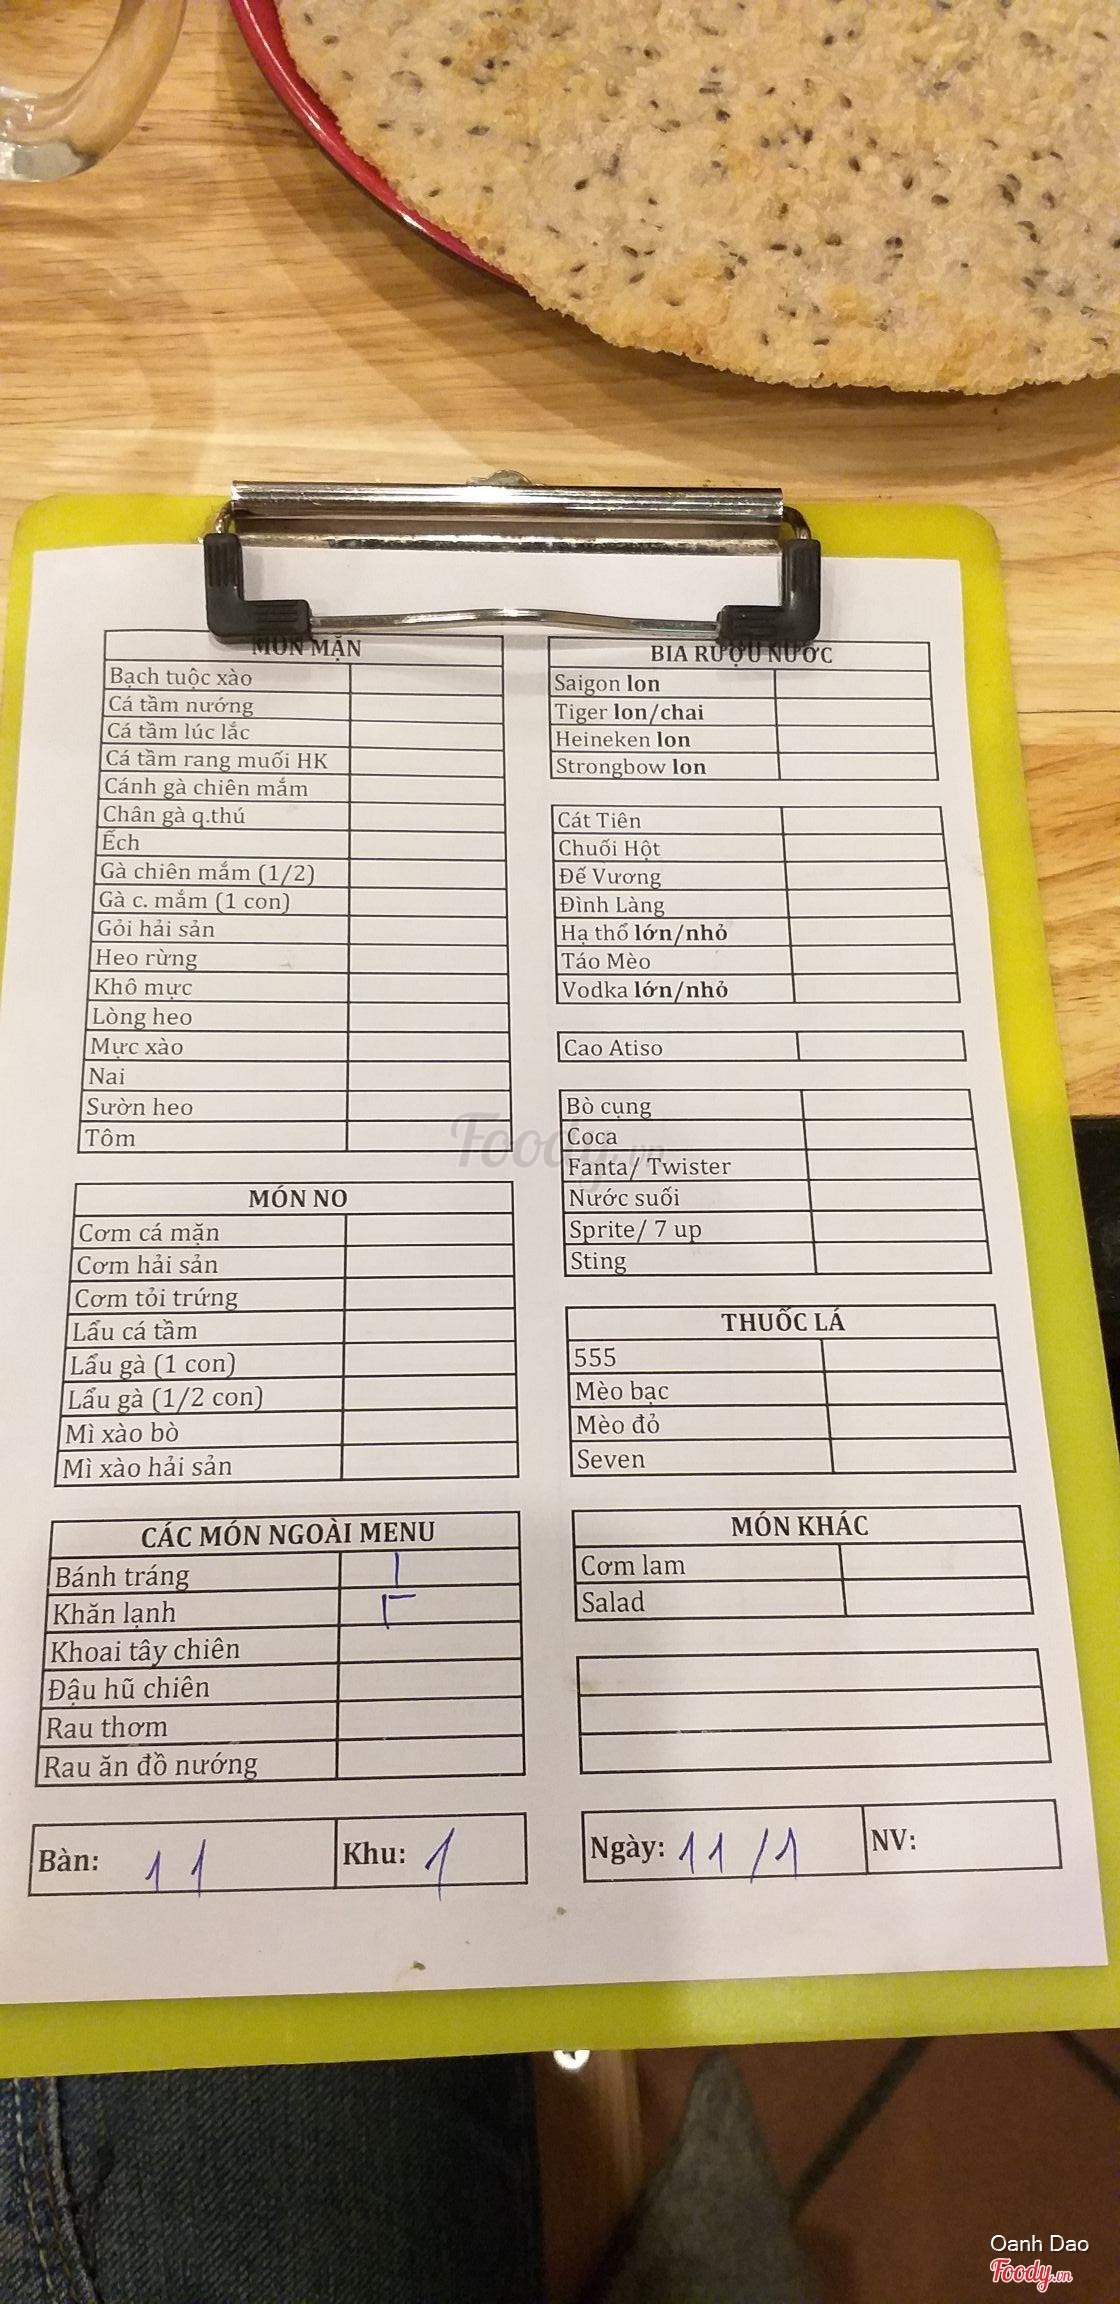 MÓN MẶN
Bạch tuộc xào
Cá tầm nướng
Cá tầm lúc lắc
Cá tầm rang muối HK
Cánh gà chiên mắm
Chân gà q.thú
Ếch
Gà chiên mắm (1/2)
Gà c. mắm (1 con)
Gỏi hải sản
Heo rừng
Khô mực
Lòng heo
Mực xào
Nai
Sườn heo
Tôm
MÓN NO
Cơm cá mặn
Cơm hải sản
Cơm tỏi trứng
Lẩu cá tầm
Lẩu gà (1 con)
Lẩu gà (1/2 con)
Mì xào bò
Mì xào hải sản
CÁC MÓN NGOÀI MENU
Bánh tráng
Khăn lạnh
Khoai tây chiên
Đậu hũ chiên
Rau thơm
Rau ăn đồ nướng
Bàn: 11 Khu: 1
BIA RƯỢU NƯỚC
Saigon lon
Tiger lon/chai
Heineken lon
Strongbow lon
Cát Tiên
Chuối Hột
Đế Vương
Đình Làng
Hạ thổ lớn/nhỏ
Táo Mèo
Vodka lớn/nhỏ
Cao Atiso
Bò cụng
Coca
Fanta/ Twister
Nước suối
Sprite/ 7 up
Sting
THUỐC LÁ
555
Mèo bạc
Mèo đỏ
Seven
MÓN KHÁC
Cơm lam
Salad
Ngày: 11/1 NV:
Foody.vn
Oanh Dao
Foody.vn